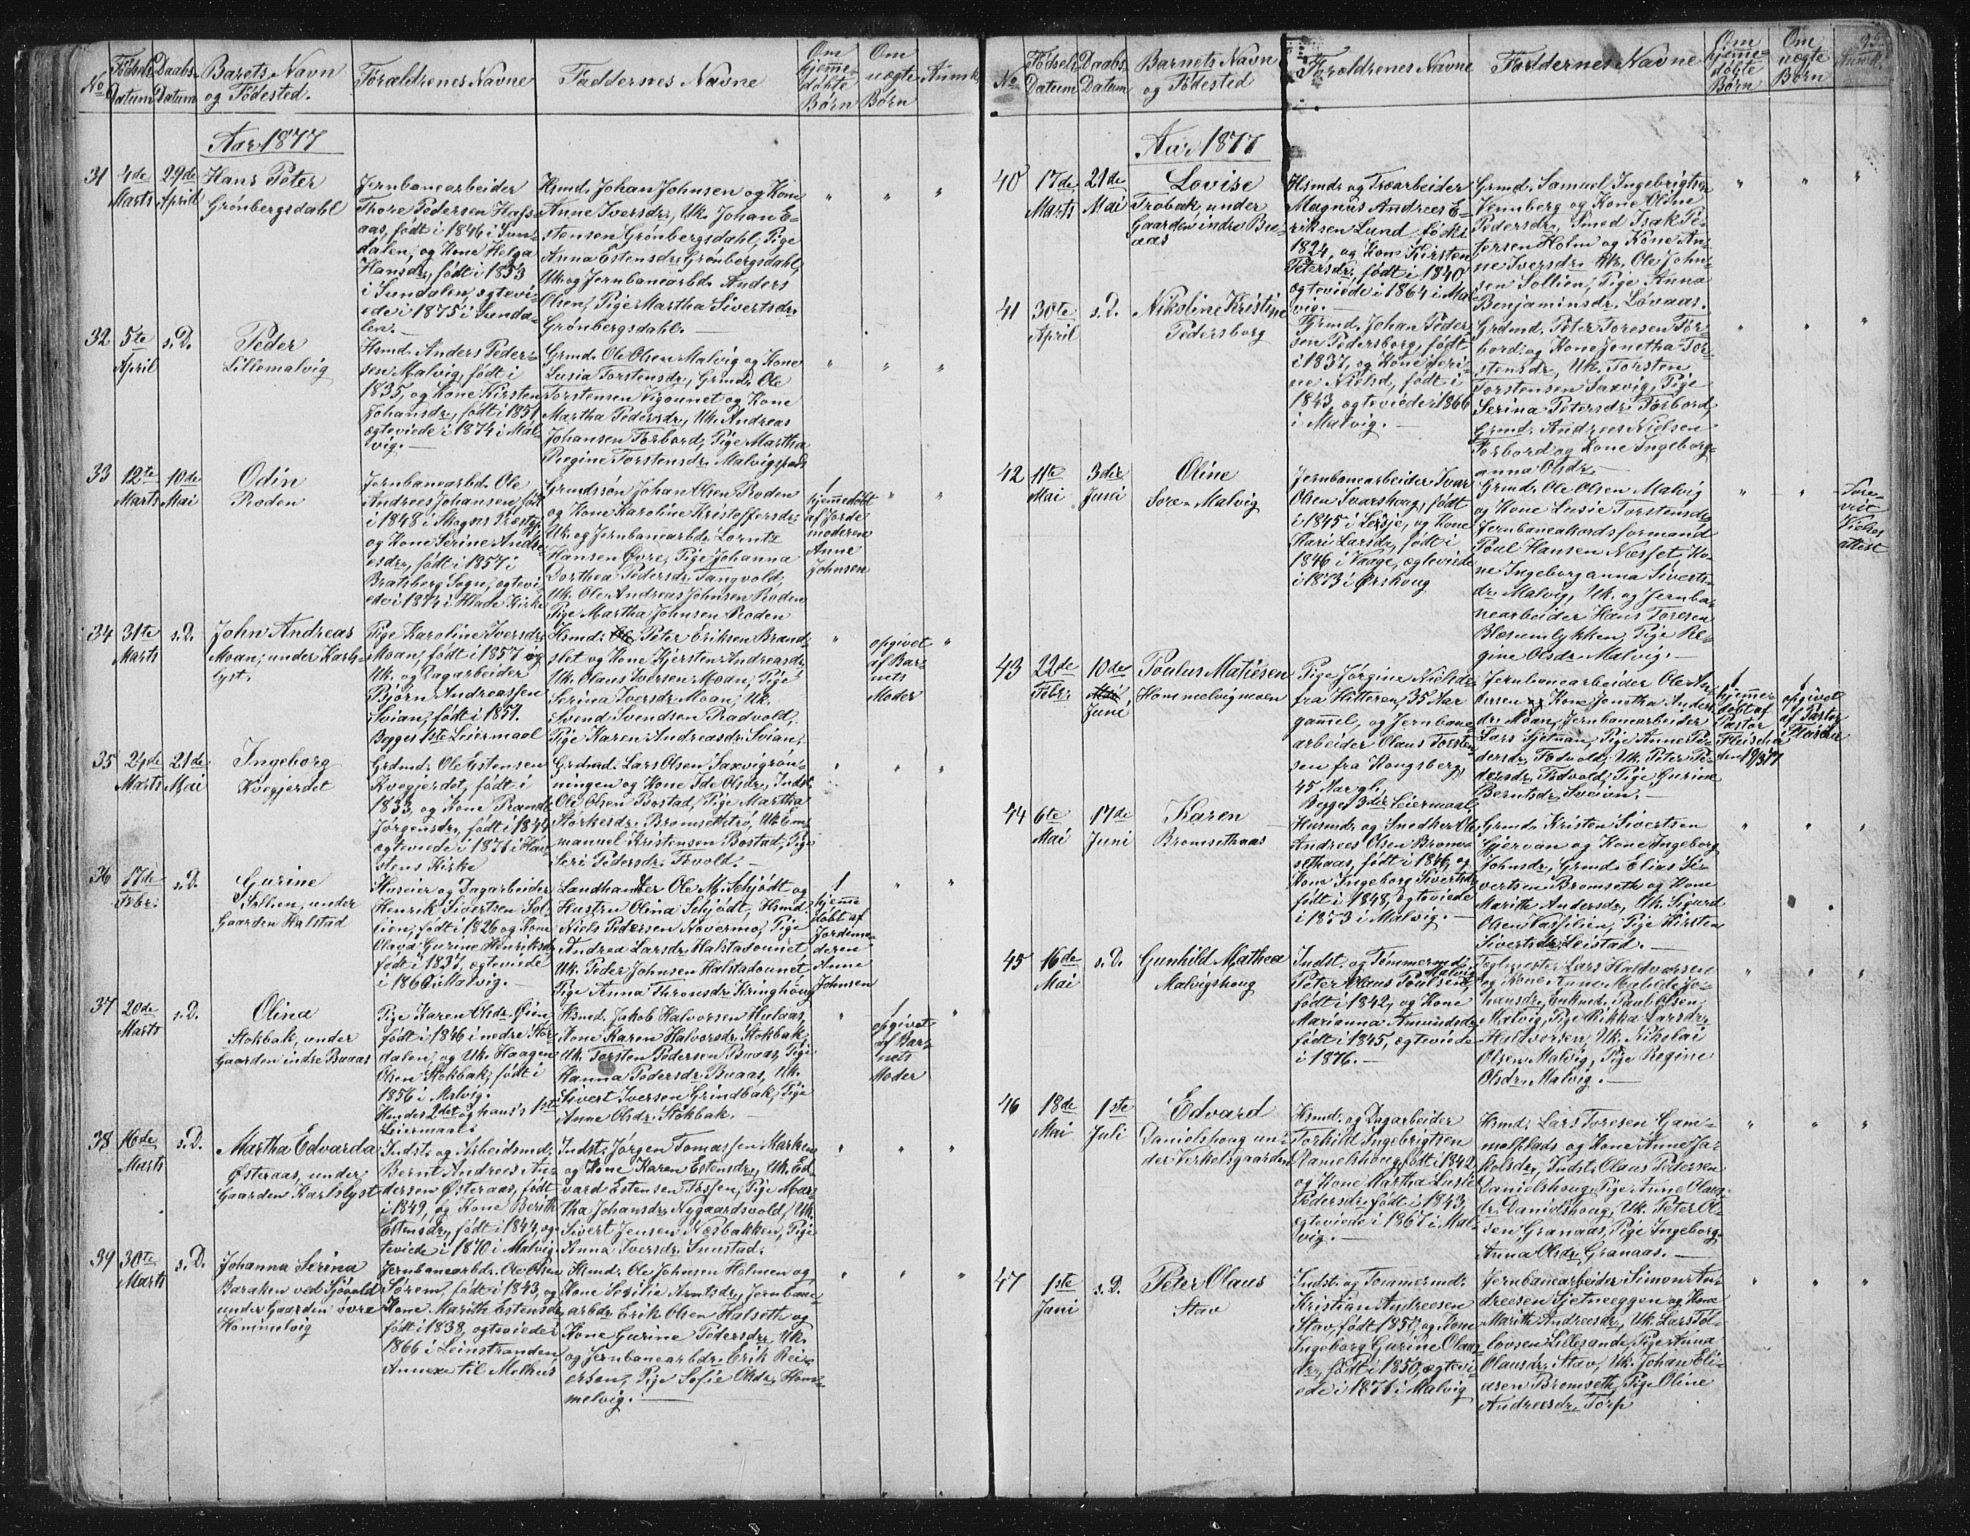 No
Fødsels
Datum
Daabs
Datum
Barets Navn
og Fødested.
Forældrenes Navne
Faddernes Navne
Om
hjemme-
døbte
Børn
Om
uægte
Børn
Anmk.
Aar 1877
31
4de
Marts
29de
April
Hans Peter
Grønbergsdahl
Jernbanearbeider
Thore Pedersen Hafs-
aas, født i 1846 i Sun-
dalen, og Kone Helga
Hansdr, født i 1853
i Sundalen, egtevi-
ede i 1875 i Sunda-
len.
Hsmd. Johan Johnsen og Kone
Anne Iversdr, Uk. Johan E-
stensen Grønbergsdahl, Pige
Anna Estensdr Grønbergsdahl,
Uk og Jernbanearbd. Anders
Olsen, Pige Martha Sivertsdr
Grønbergsdahl.
32
5te
April
s. D.
Peder
Lillemalvig
Hsmd. Anders Peder-
sen Malvig, født i
1835, og Kone Kirsten
Johansdr, født i 1851
egteviede i 1874 i Mal-
vig.
Grmd. Ole Olsen Malvig og Kone
Lusia Torstensdr, Grmd. Ole
Torstensen Viggunet og Kone
Martha Pedersdr, Uk. Andreas
Johansen Torbord, Pige Martha
Regine Torstensdr. Malvigstad
33
12te
Marts
10de
Mai
Odin
Roden
Jernbanearbd. Ole
Andreas Johansen, født
i 1848 i Skogns Præstgj.
og Kone Serine Andre-
esdr, født i 1857 i
Bratsberg Sogn, egtevi-
ede i 1874 i Hlade Kirke
Grmdssøn Johan Olsen Roden
og Kone Karoline Kristoffersdr
Uk. og Jernbanearbd. Lorntz
Hansen Øvre, Pige Johanna
Dorthea Pedersdr Tangvold,
Uk. Ole Andreas Johnsen Roden
Pige Martha Johnsen Roden
1
hjemmedøbt
af Jorde
moderen
Anne
Johnsen
34
31te
Marts
s. D.
John Andreas
Moan, under Karls-
lyst.
Pige Karoline Iversdr
Moan, født i 1857 og
Uk. og Dagarbeider
Bjørn Andreassen
Svian, født i 1851.
Begges 1ste Leiermaal
Hsmd. Peter Eriksen Brand-
slet og Kone Kjersten Andreasdr
Uk. Olaus Iversen Moan, Pige
Serina Iversdr Moan, Uk.
Svend Svendsen Rradvold,
Pige Karen Andreasdr Svian,
opgivet
af Bar-
nets
Moder
35
24de
Marts
21de
Mai
Ingeborg
Kvegjerdet
Grdmd. Ole Estensen
Kvegjerdet, født i
1833, og Kone Randi
Jørgensdr, født i 1844
egteviede i 1871 i Hav-
stens Kirke
Grdmd. Lars Olsen Saxvigrøn-
ningen og Kone Ide Olsdr, Indst.
Ole Olsen Bostad, Pige Martha
Størkersdr. Bromsethrø, Uk. Em-
manuel Kristensen Bostad, Pige
Seri Pedersdr Fævold.
36
17de
Febr.
s. D.
Gurine
Solbien, under
Gaarden Halstad
Husvier og Dagarbeider
Henrik Sivertsen Sol-
lien, født i 1826 og Kone
Olava Gurine Henriksdr
født i 1837, egteviede
i 1860 i Malvig.
Landhandler Ole M. Schjødt og
Hustru Olina Schjødt, Hsmd.
Niels Pedersen Hovermo, Pige
Andrea Larsdr Halstadounet,
Uk. Peder Johnsen Halstadounet
Pige Anna Thronsdr Kringhoug
1
hjemme
døbt af
Jordmo-
deren
Anne
Johnsen
37
20de
Marts
s. D.
Olina
Stokbak, under
Gaarden indre Buaas
Pige Karen Olsdr Øien,
født i 1846 i nedre Stør-
dalen, og Uk. Haagen
Olsen Stokbak, født i
1856 i Malvig.
Hendes 2det og hans 1ste
Leiermaal.
Hsmd. Jakob Halvorsen Hulaas,
Kone Karen Halvorsdr Stokbak,
Uk. Torsten Pedersen Buaas, Pige
Hanna Pedersdr Buaas, Uk.
Sivert Iversen Grindbak, Pige
Anne Olsdr Stokbak.
1
opgivet
af Bar-
nets
Moder
38
16de
Marts
s. D.
Martha Edvarda
Østeraas, under
Gaarden Karlslyst
Indst. og Arbeidsmd.
Bernt Andreas An-
dersen Østeraas, født
i 1849, og Kone Berit
Estensdr, født i 1844, eg-
teviede i 1870 i Malvig
Indst. Jørgen Tomassen Marken
og Kone Karen Estensdr, Uk. Ed-
vard Estensen Fossen, Pige Mar-
tha Johansdr Nygaardsvold, Uk.
Sivert Jensen Næsbakken, Pige
Anna Iversdr Sunstad.
39
30te
Marts
s. D.
Johanna Serina
Baraken ved Sjøvold
under Gaarden øvre
Hommelvig
Jernbanearbd. Ole Olsen
Sørem, født i 1843, og
Kone Marith Estensdr
født i 1838, egteviede
1866 i Leinstranden
Annex til Melhus
Hsmd. Ole Johnsen Holmen og
Kone Sofilie Arntsdr, Jernbane-
arbdr Erik Olsen Halseth og
Kone Gurine Pedersdr, Uk.
og Jernbanearbdr. Erik Rei-
erson, Pige Sofie Olsdr, Hom-
melvig.
No
Fødsels
Datum
Daabs
Datum
Barnets Navn
og Fødested
Forældrenes Navne
Faddernes Navne
Om
hjemme-
døbte
Børn
Om
uægte
Børn
Anmk.
Aar 1877
40
17de
Marts
21de
Mai
Lovise
Trøbak, under
Gaarden indre Bu-
aas
Hsmd. og Træarbeider
Magnus Andreas E-
riksen Lund, født
1824, og Kone Kirsten
Petersdr, født i 1840
egteviede i 1864 i Mal-
vig.
Grmd. Samuel Ingebrigtsen
Vennberg og Kone Oline
Pedersdr, Smed Isak Pe-
tersen Holm og Kone An-
ne Iversdr. Uk. Ole John-
sen Sollien, Pige Anna
Benjaminsdr. Lovaas.
41
30te
April
s. D.
Nikoline Kristine
Pedersborg
Grmd. Johan Peder-
sen Pedersborg, født
i 1837, og Kone Seri-
ne Nielsd, født i
1843, egteviede i 1866
i Malvig.
Grdmd. Peter Toresen Tor-
bord og Kone Jonetha Tor-
stensdr, Uk. Torsten
Torstensen Saxvig, Pige
Serina Petersdr. Torbord,
Grmd. Andreas Nielsen
Torbord og Kone Ingeborg-
anna Olsdr.
42
11te
Mai
3die
Juni
Oline
Søren Malvig
Jernbanearbeider Ivar
Olsen Svarshaug, født
i 1845 i Lessje, og Kone
Mari Larsdr, født i
1846 i Vaage, egteviede
i 1873 i Ørshoug
Grmd. Ole Olsen Malvig
og Kone Lusie Torstensdr
Jernbaneakordsformand
Poul Hansen Næsset, Ko-
ne Ingeborganna Siverts-
dr. Malvig, Uk. og Jernba-
nearbeider Hans Toresen
Blæsumlykken, Pige Re-
gine Olsdr. Malvig.
attest
43
22de
Febr.
10de
Juni
Poulus Matiesen
Hommelvigmoen
Pige Jørgine Nielsdr
fra Hitteren, 35 Aar
gammel, og Jernbane-
arbeider Olaus Torsten-
sen fra Kongsberg,
45 Aar gl.
Begges 3die Leiermaal.
Jernbanearbeider Ole An-
dersen og Kone Jonetha Anders-
dr. Moan, Jernbanearbeider
Lars Sjetnan, Pige Anne Pe-
dersdr, Fodvold, Uk. Peter Pe-
dersdr, Fodvold, Pige Gurine
Berntsdr, Sveian.
1
hjemme-
døbt af
Pastor
Fleischer
den 19/3 77
1
opgivet
af Pastor
Fleischer
44
6te
Mai
17de
Juni
Karen
Bromsethaas
Husmd. og Snedker Ole
Andreas Olsen Brom-
sethaas, født i 1846, og
Kone Ingeborg Sivertsdr
født i 1848, egteviede
i 1873 i Malvig.
Grmd. Kristen Sivertsen
Gjervan og Kone Ingeborg
Johnsdr, Grmd. Elias Si-
vertsen Bromseth og Kone
Marith Andersdr, Uk. Sigurd
Olsen Vasslien, Pige Kirsten
Sivertsdr Leistad.
45
16de
Mai
s. D.
Gunhild Mathea
Malvigshoug
Indst. og Tømmermd.
Peter Olaus Poulsen
Malvig
født i 1842, og Kone
Marianna Amundsdr
født i 1845, egteviede
i 1876.
Teglmester Lars Haldvorsen
og Kone Anne Matilde Jo-
hansdr, Paul Olsen
Malvig, Pige Rikka Larsdr
Haldvorsen, Uk. Nikolai
Olsen Malvig, Pige Regine
Olsdr Malvig.
46
18de
Mai
1ste
Juli
Edvard
Danielshoug un-
der Verkelsgaarden
Hsmd. og Dagarbeider
Torkild Ingebrigtsen
Danielshoug, født i 1842
og Kone Martha Lusie
Pedersdr, født i 1843,
egteviede i 1867 i Mal-
vig.
Hsmd. Lars Toresen Gam-
melplads og Kone Anne Ja-
kobsdr, Indst. Olaus Pedersen
Danielshoug, Pige Anne Olaus-
dr. Danielshoug, Uk. Peter O-
lsen Granaas, Pige Ingeborg-
Anna Olsdr, Granaas.
47
1ste
Juni
s. D.
Peter Olaus
Stav
Indst. og Tømmermd.
Kristian Andreesen
Stav, født i 1851, og Kone
Ingeborg Gurine Olaus-
dr, født i 1850, egtevi-
ede i 1871 i Malvig
Jernbanearbeider Simon An-
dreesen Sjetneeggen og Kone
Marith Andreesdr, Uk. Lars Tol-
lovsen Lillesande, Pige Anna
Olausdr. Stav, Uk. Johan Eli-
asen Bromseth, Pige Oline
Andreesdr. Torp